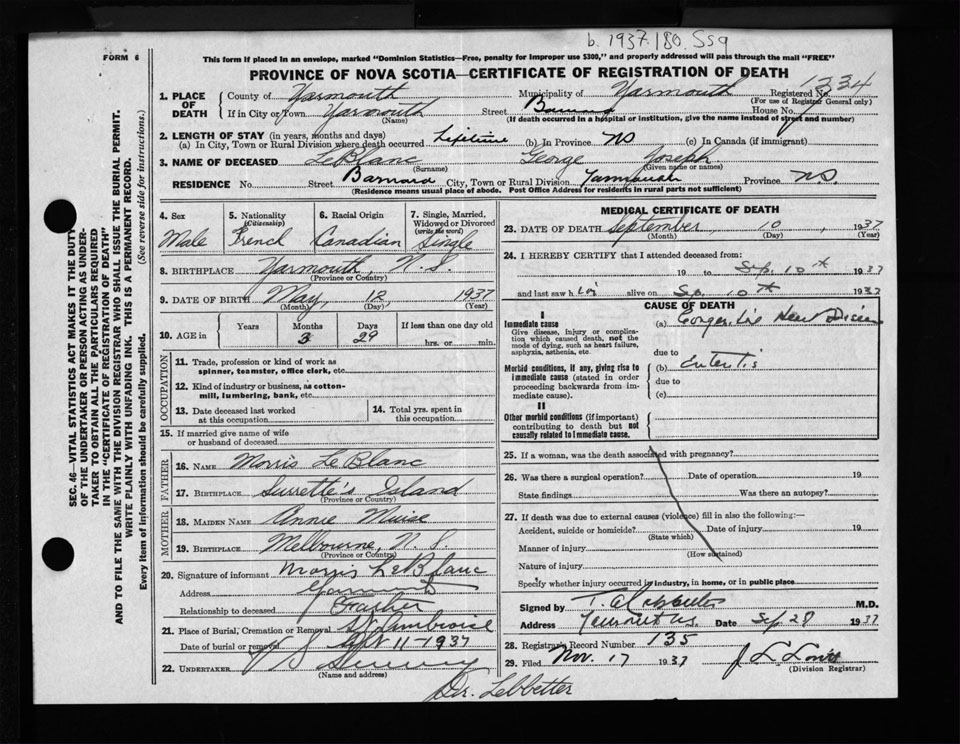 b. 1937.180.559
FORM 6
This form if placed in an envelope, marked "Dominion Statistics—Free, penalty for improper use $300," and properly addressed will pass through the mail "FREE"
PROVINCE OF NOVA SCOTIA—CERTIFICATE OF REGISTRATION OF DEATH
1. PLACE OF DEATH
County of Yarmouth Municipality of Yarmouth Registered No. 1334
(For use of Registrar General only)
If in City or Town Yarmouth Street House No.
(Name) (If death occurred in a hospital or institution, give the name instead of street and number)
2. LENGTH OF STAY (in years, months and days)
(a) In City, Town or Rural Division where death occurred Lifetime (b) In Province NS (c) In Canada (if immigrant)
3. NAME OF DECEASED LeBlanc George Joseph
(Surname) (Given name or names)
RESIDENCE No. Street Barnard City, Town or Rural Division Yarmouth Province NS.
(Residence means usual place of abode. Post Office Address for residents in rural parts not sufficient)
4. Sex
Male
5. Nationality (Citizenship)
French
6. Racial Origin
Canadian
7. Single, Married, Widowed or Divorced (write the word)
Single
8. BIRTHPLACE Yarmouth, N.S.
(Province or Country)
9. DATE OF BIRTH May, 12 1937
(Month) (Day) (Year)
10. AGE in
Years Months Days If less than one day old
3 29 hrs. or min.
OCCUPATION
11. Trade, profession or kind of work as spinner, teamster, office clerk, etc.
12. Kind of industry or business, as cotton-mill, lumbering, bank, etc.
13. Date deceased last worked at this occupation
14. Total yrs. spent in this occupation
15. If married give name of wife or husband of deceased
FATHER
16. NAME Morris LeBlanc
17. BIRTHPLACE Surrette's Island
(Province or Country)
MOTHER
18. MAIDEN NAME Annie Muise
19. BIRTHPLACE Melbourne, N.S.
(Province or Country)
20. Signature of informant Morris LeBlanc
Address
Relationship to deceased Father
21. Place of Burial, Cremation or Removal St Ambroise
Date of burial or removal Sept 11-1937
22. UNDERTAKER
(Name and address)
Dr. Lebbetter
MEDICAL CERTIFICATE OF DEATH
23. DATE OF DEATH September, 10, 1937
(Month) (Day) (Year)
24. I HEREBY CERTIFY that I attended deceased from:
19 to Sep. 10th 1937
and last saw h alive on Sep. 10th 1937
CAUSE OF DEATH
I
Immediate cause
Give disease, injury or complication which caused death, not the mode of dying, such as heart failure, asphyxia, asthenia, etc.
(a) Heart
due to
Morbid conditions, if any, giving rise to immediate cause (stated in order proceeding backwards from immediate cause).
(b)
due to
(c)
II
Other morbid conditions (if important) contributing to death but not causally related to immediate cause.
25. If a woman, was the death associated with pregnancy?
26. Was there a surgical operation? Date of operation 19
State findings Was there an autopsy?
27. If death was due to external causes (violence) fill in also the following:—
Accident, suicide or homicide? Date of injury 19
(State which)
Manner of injury
(How sustained)
Nature of injury
Specify whether injury occurred in industry, in home, or in public place
Signed by M.D.
Address Date Sep 28 1937
28. Registrar's Record Number 135
29. Filed Nov. 17 1937
(Division Registrar)
SEC. 46—VITAL STATISTICS ACT MAKES IT THE DUTY OF THE UNDERTAKER OR PERSON ACTING AS UNDERTAKER TO OBTAIN ALL THE PARTICULARS REQUIRED IN THE "CERTIFICATE OF REGISTRATION OF DEATH"
AND TO FILE THE SAME WITH THE DIVISION REGISTRAR WHO SHALL ISSUE THE BURIAL PERMIT.
WRITE PLAINLY WITH UNFADING INK. THIS IS A PERMANENT RECORD.
Every item of information should be carefully supplied. (See reverse side for instructions.)